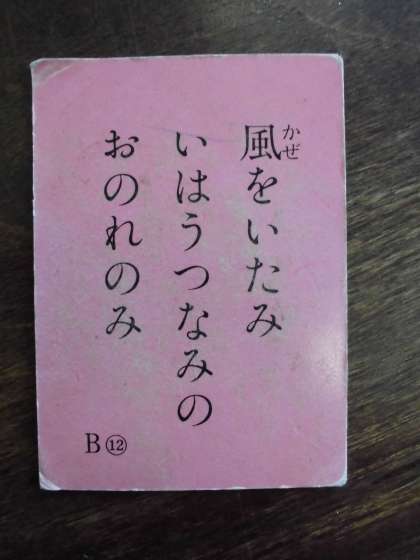 風をいたみ
いはうつなみの
おのれのみ
B⑫